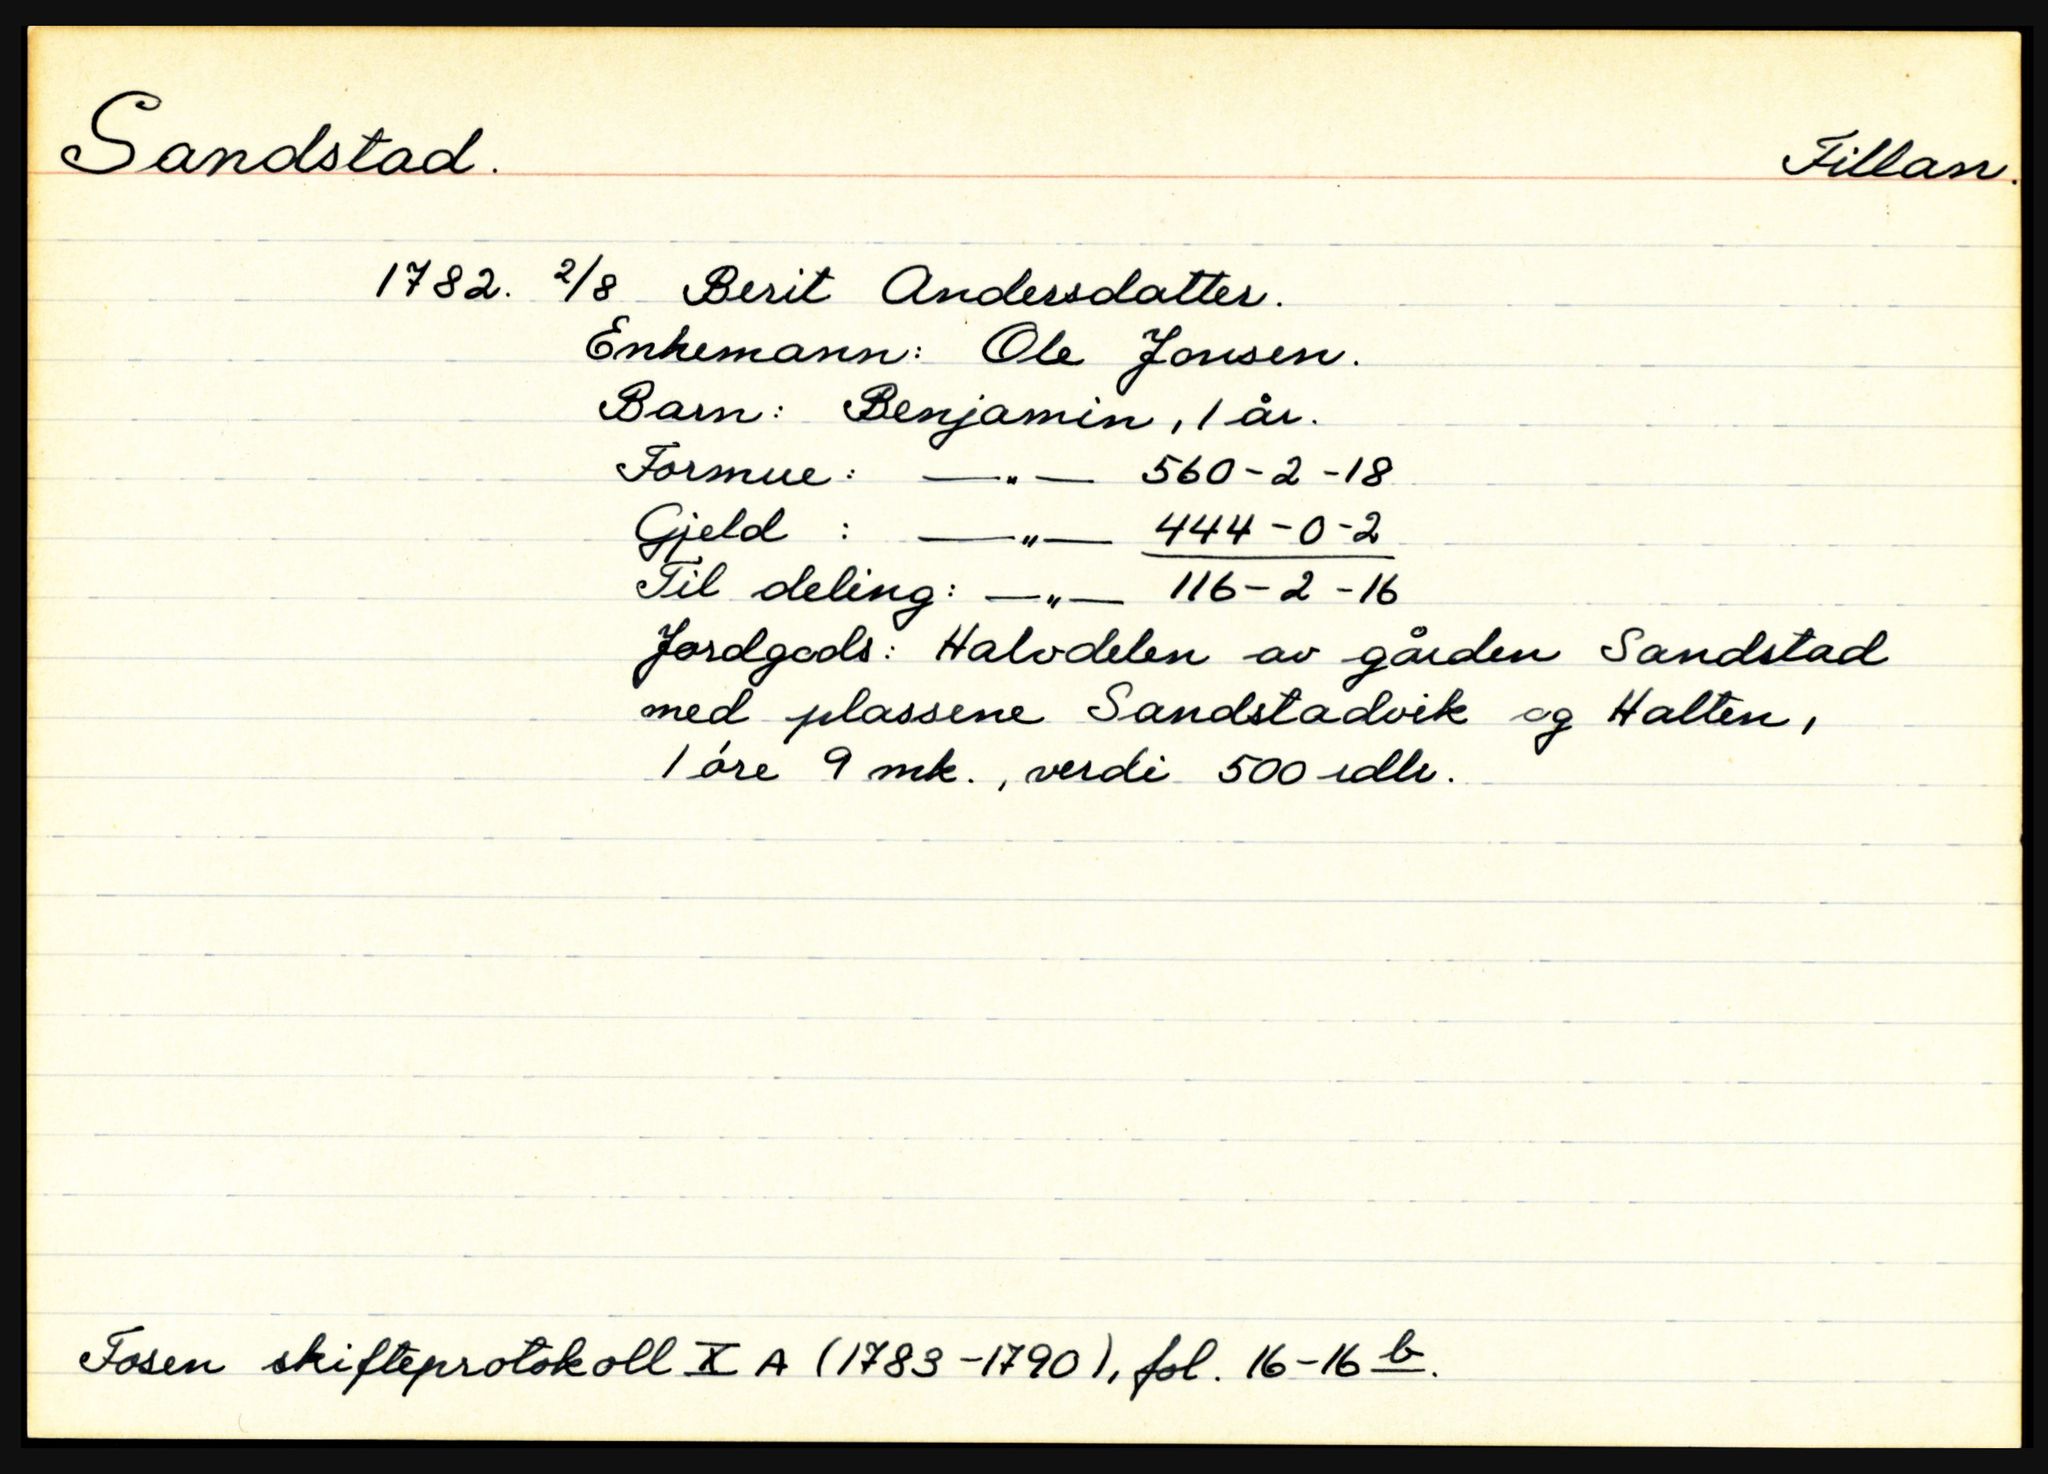 Sandstad. Fillan.
1782. 2/8 Berit Andersdatter.
Enkemann: Ole Jonsen.
Barn: Benjamin, 1 år.
Formue: —"— 560-2-18
Gjeld : —"— 444-0-2
Til deling: —"— 116-2-16
Jordgods: Halvdelen av gården Sandstad
med plassene Sandstadvik og Halten,
1 öre 9 mk., verdi 500 rdlr.
Fosen skifteprotokoll X A (1783-1790), fol. 16-16 b.